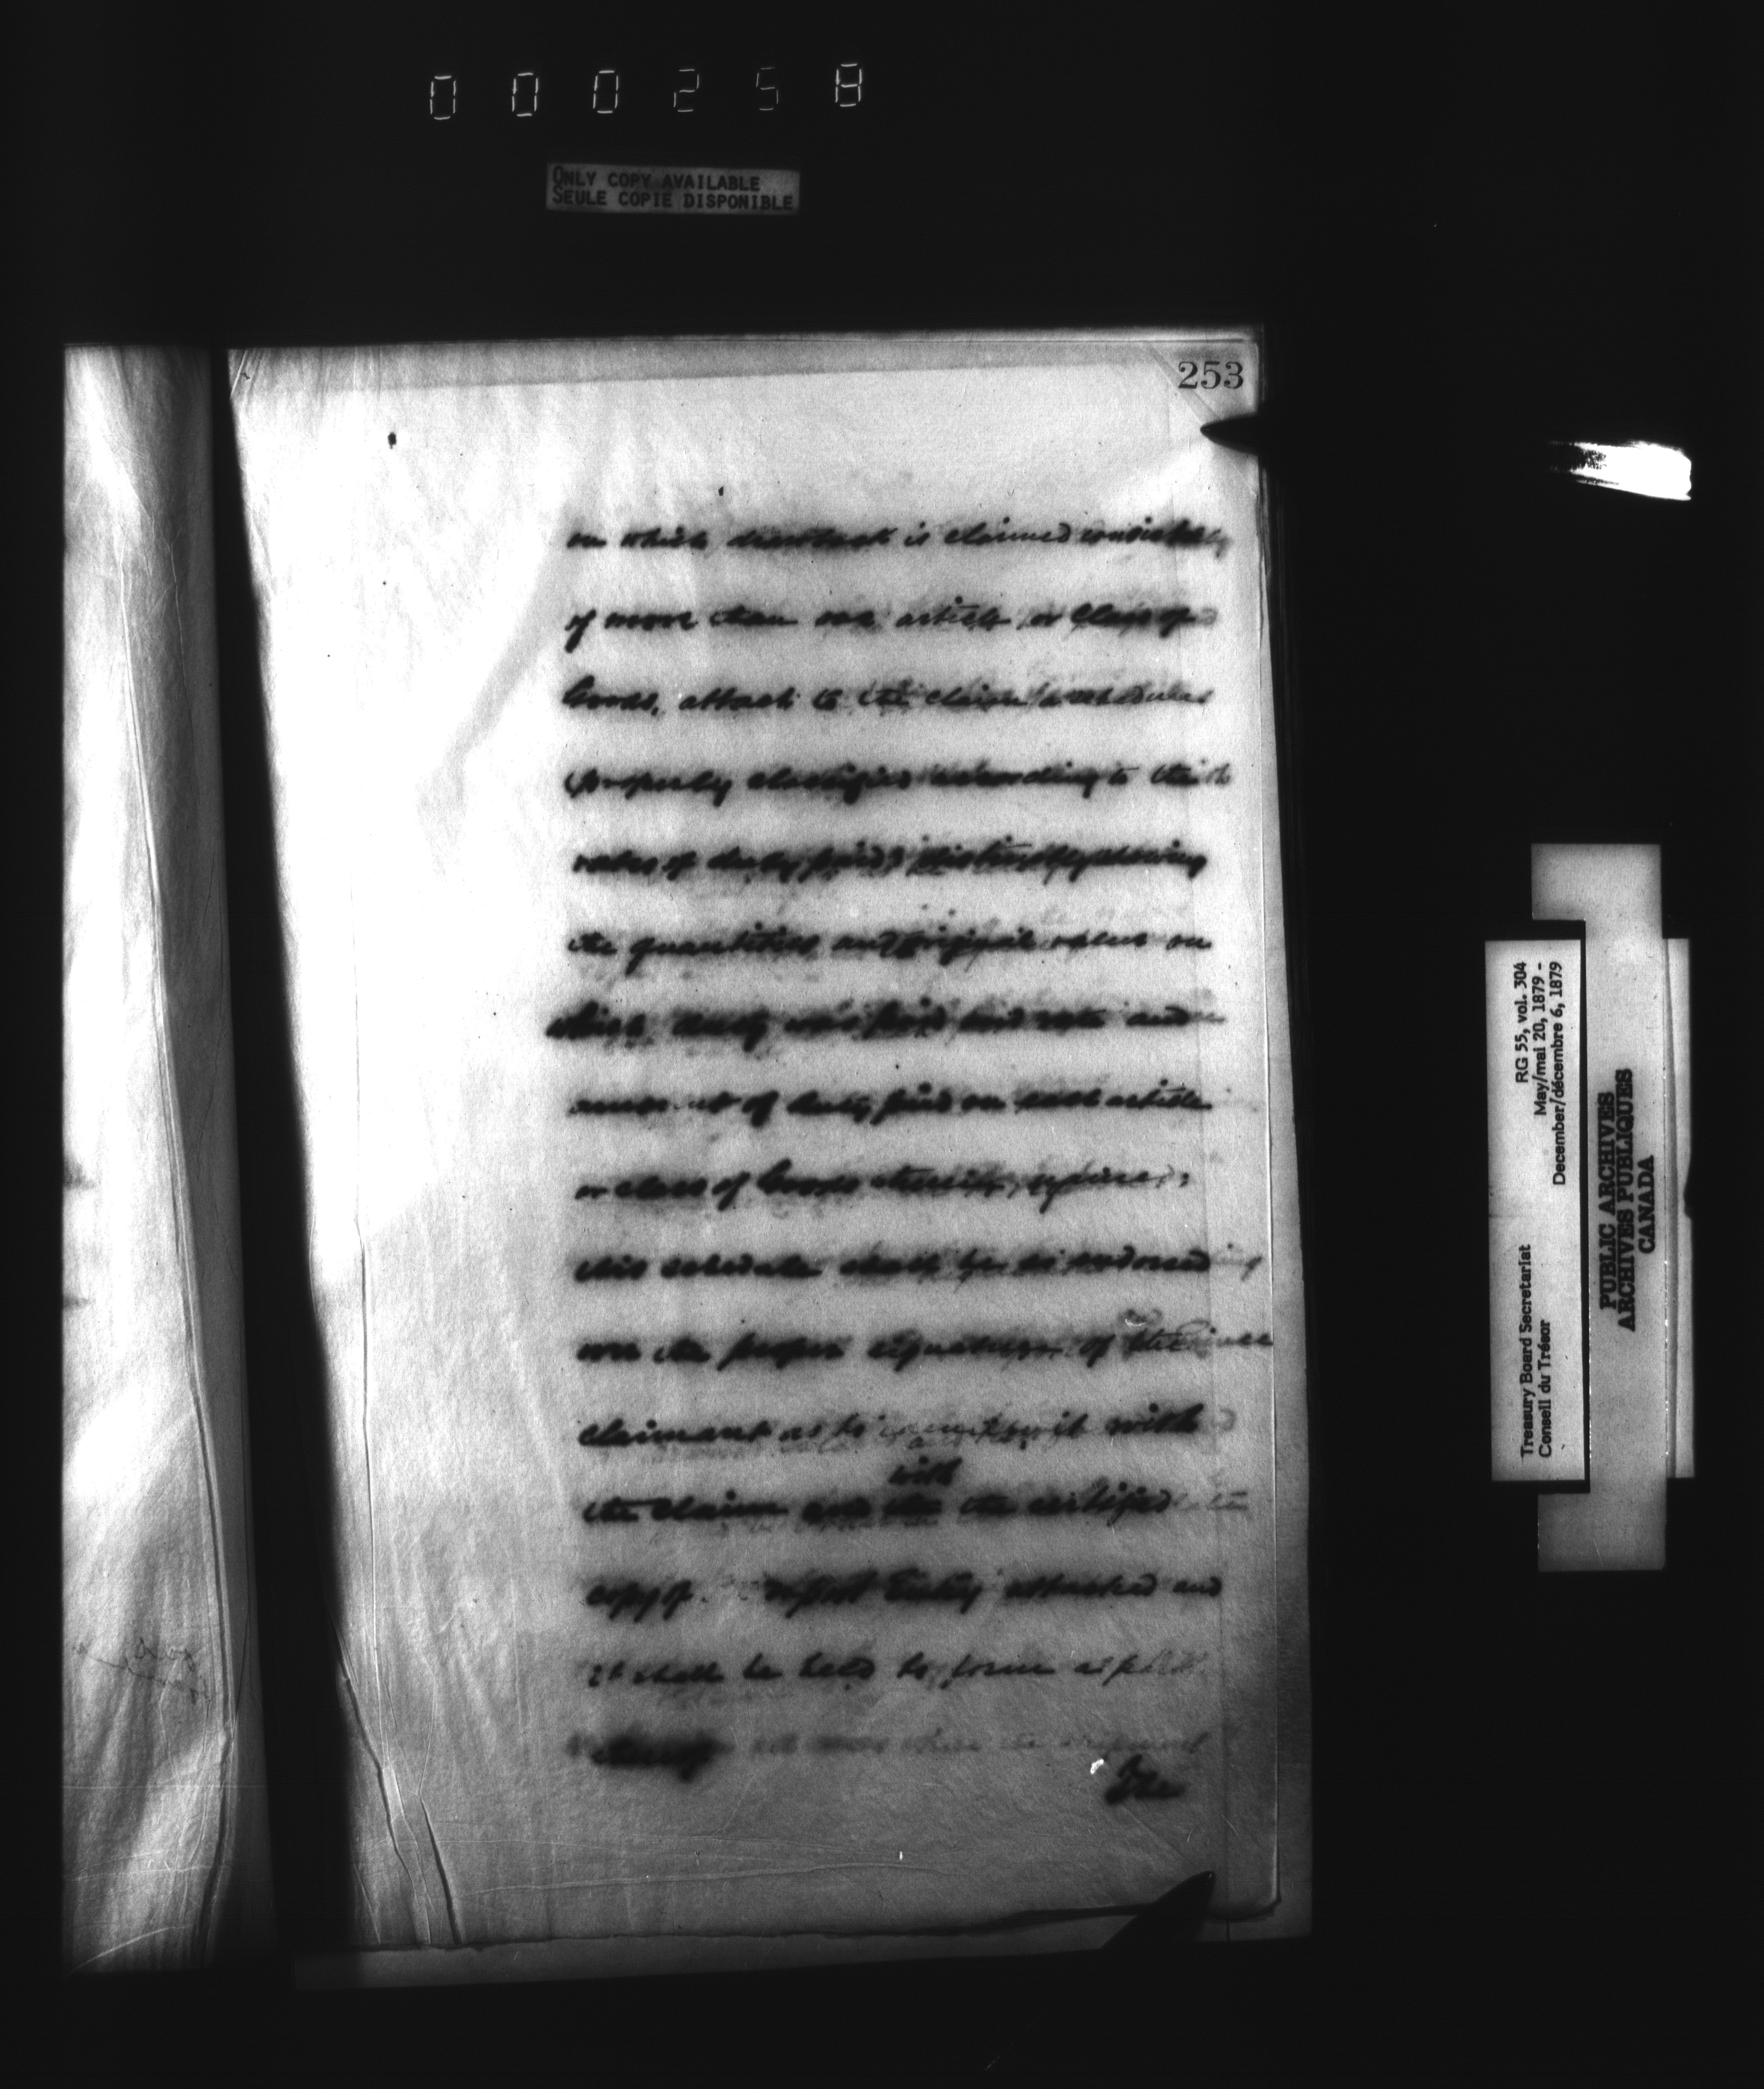 000258
ONLY COPY AVAILABLE
SEULE COPIE DISPONIBLE
253
on which drawback is claimed consists
of more than one article or class of
Goods, attach to the claim a schedule
properly classified according to the
rates of duty paid, distinctly showing
the quantities and original value on
which duty was paid and rate and
amount of duty paid on each article
or class of Goods
this schedule shall be so endorsed
over the proper signature of the
claimant as to it with
with
the claim and the the certified
copy of Import Entry attached and
it shall be held to form a part
thereof
The
RG 55, vol. 304
May/mai 20, 1879 -
December/décembre 6, 1879
Treasury Board Secretariat
Conseil du Trésor
PUBLIC ARCHIVES
ARCHIVES PUBLIQUES
CANADA